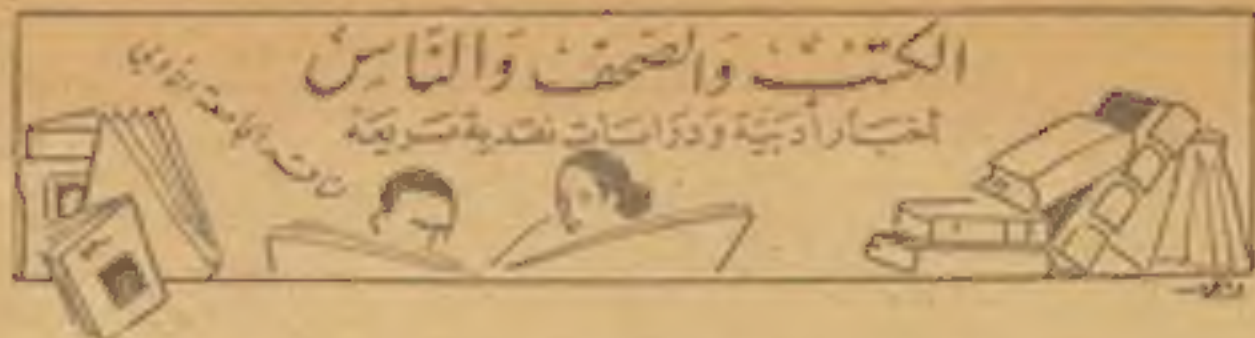 الكتب والصحف والناس
أخبار أدبية ودراسات نقدية سريعة